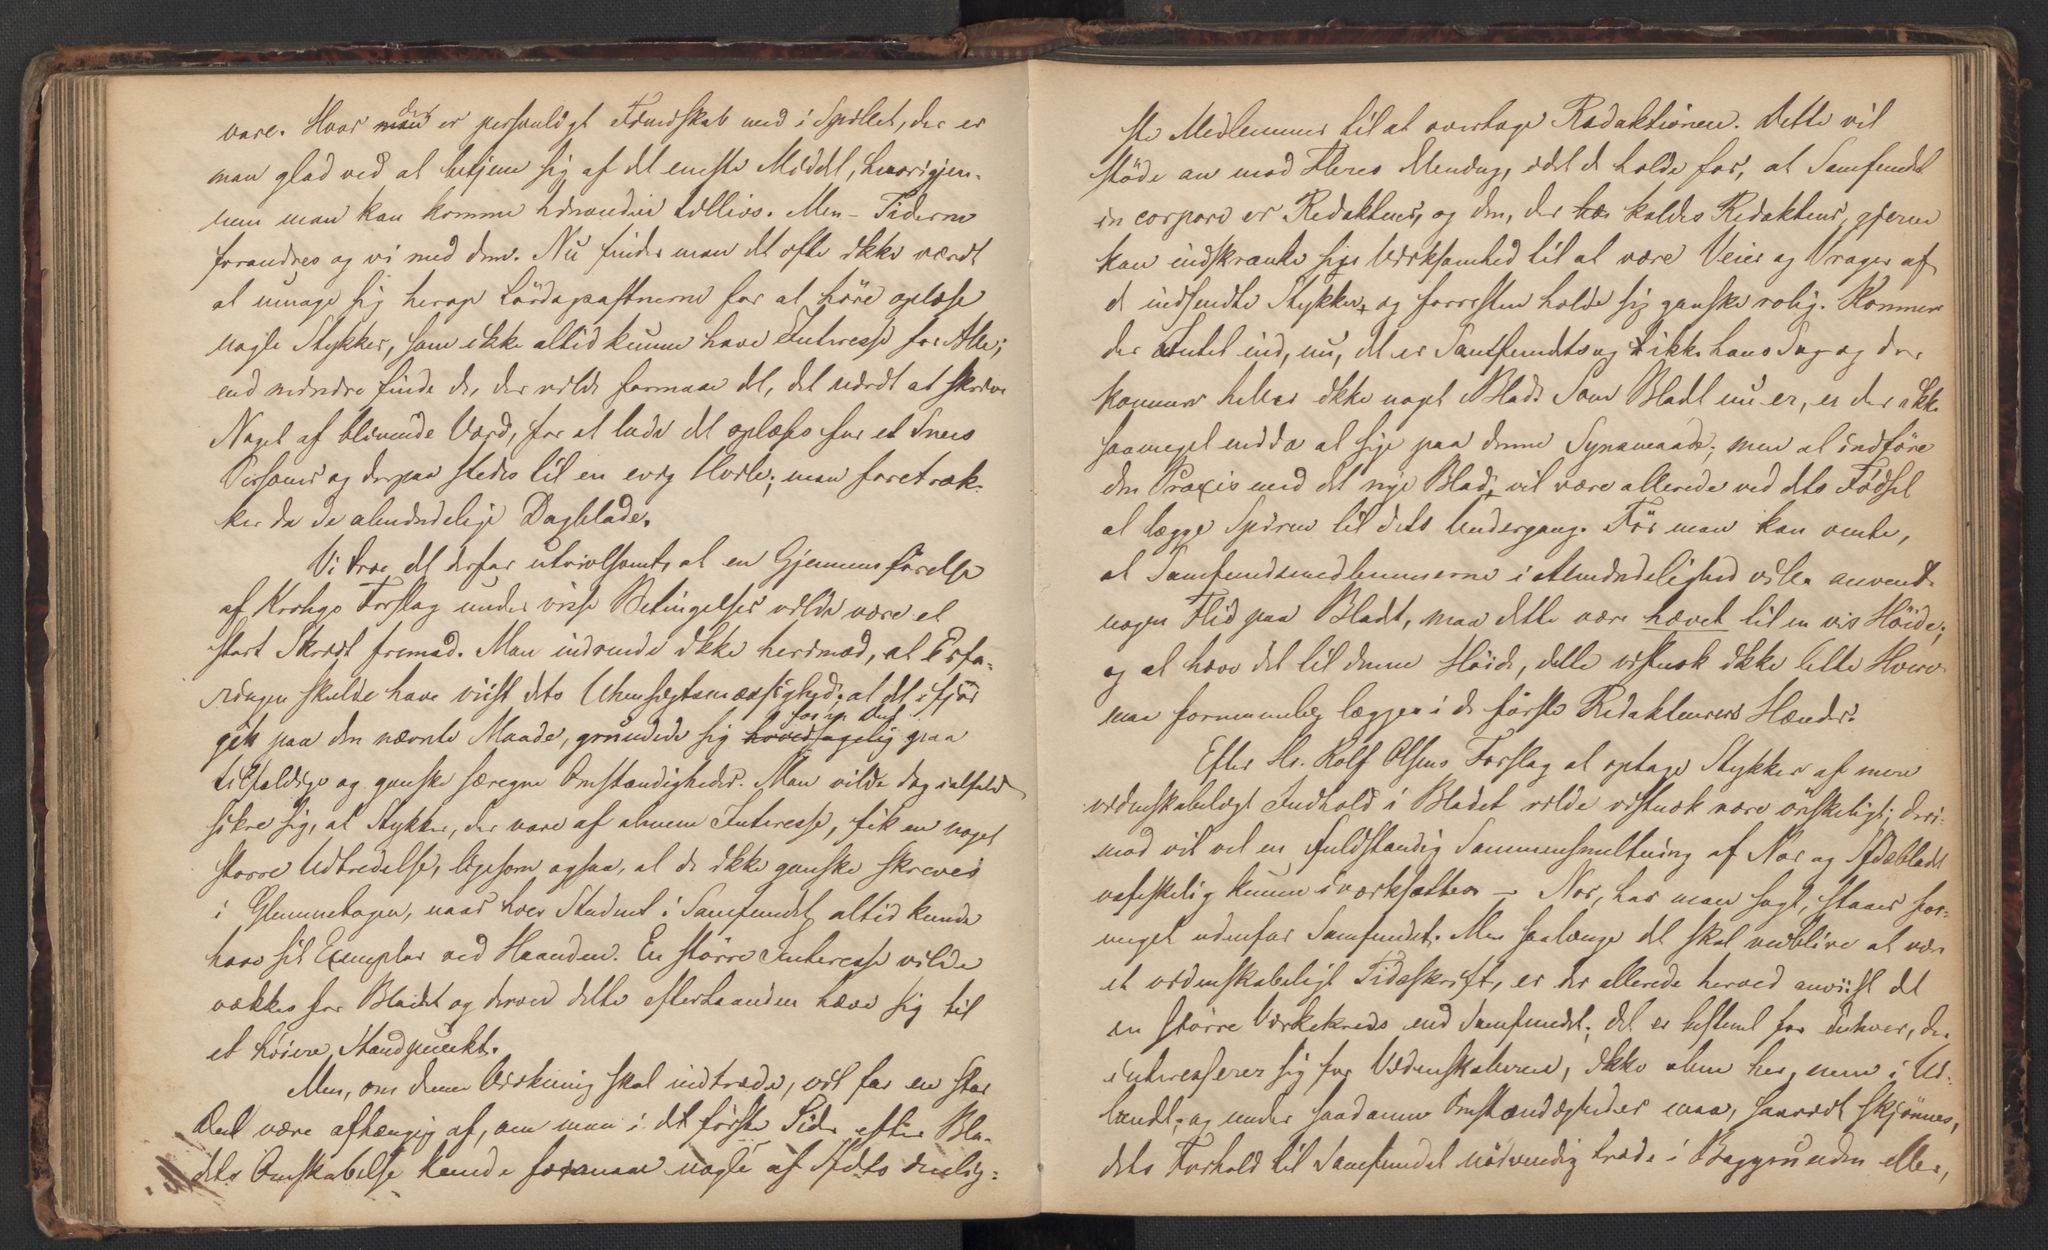 vare. Hvor der er personligt Fiendskab med i Spillet, der er
man glad ved at betjene sig af det eneste Middel, hvorigjen-
nem man kan komme hinanden tillivs. Men – Tiderne
forandres og vi med dem. Nu finder man det ofte ikke værdt
at umage sig herop Lördagsaftnerne for at höre oplæse
nogle Stykker, som ikke altid kunne have Interesse for Alle;
end mindre finde de, der vilde formaae det, det værdt at skrive
Noget af blivende Værd, for at lade det oplæses for et Snees
Personer og derpaa stedes til en evig Hvile; man foretræk-
ker da de almindelige Dagblade.
Vi troe det derfor utvivlsomt, at en Gjennemförelse
af Krohgs Forslag under visse Betingelser vilde være et
stort Skridt fremad. Man indvende ikke herimod, at Erfa-
ringen skulde have viist dets Uhensigtsmæssighed; at det ifjor
gik paa den nævnte Maade, grundede sig hovedsagelig paa
tilfældige og ganske særegne Omstændigheder. Man vilde dog ialfald
sikre sig, at Stykker, der vare af almeen Interesse, fik en noget
større Udbredelse, ligesom ogsaa, at de ikke ganske skreves
i Glemmebogen, naar hver Student i Samfundet altid kunde
have sit Exemplar ved Haanden. En större Interesse vilde
vækkes for Bladet og derved dette efterhaanden hæve sig til
et höiere Standpunkt.
Men, om denne Virkning skal indtræde, vil for en stor
Deel være afhængig af, om man i det förste Tid efter Bla-
dets Omskabelse kunde formaae nogle af Sfdts dulig-
ste Medlemmer til at overtage Redaktionen. Dette vil
stöde an mod Fleres Mening, idet de holde for, at Samfundet
in corpore er Redakteur, og den, der kaldes Redakteur, gjerne
kan indskrænke sin Virksomhed til at være Veier og Vrager af
de indsendte Stykker og forresten holde sig ganske rolig. Kommer
der Intet ind, nu, det er Samfundets og ikke hans Sag og der
kommer heller ikke noget Blad. Som Bladet nu er, er der ikke
saameget endda at sige paa denne Synsmaade; men at indföre
den Praxis med det nye Blad, vil være allerede ved dets Födsel
at lægge Spiren til dets Undergang. För man kan vente,
at Samfundsmedlemmerne i Almindelighed ville anvende
nogen Flid paa Bladet, maa dette være hævet til en vis Höide;
og at hæve det til denne Höide, dette vistnok ikke lette Hverv
maa fornemmelig lægges i de förste Redakteurers Hænder.
Efter Hr. Rolf Olsens Forslag at optage Stykker af mere
videnskabeligt Indhold i Bladet vilde vistnok være önskeligt; deri-
mod vil vel en fuldstændig Sammensmeltning af Nor og Sfdsbladet
vanskelig kunne iværksættes – Nor, har man sagt, staaer for-
meget udenfor Samfundet. Men saalænge det skal vedblive at være
et videnskabeligt Tidsskrift, er der allerede herved anviist det
en större Virkekreds end Samfundet; det er bestemt for Enhver, der
interesserer sig for Videnskaberne, ikke alene her, men i Ud-
landet; og under saadanne Omstændigheder maa, saavidt skjönnes,
dets Forhold til Samfundet nödvendig træde i Baggrunden eller,